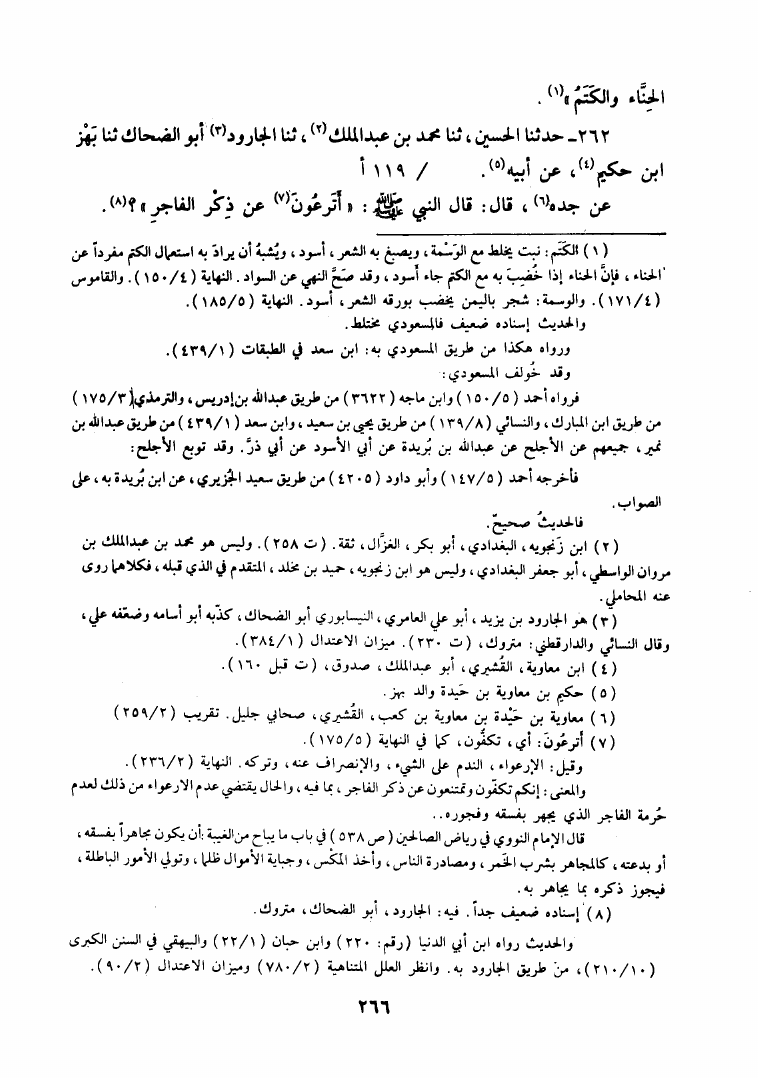 الحِنَّاء والكَتَمُ»(١) .
٢٦٢ـ حدثنا الحسين ، ثنا محمد بن عبدالملك(٢) ، ثنا الجارود(٣) أبو الضحاك ثنا بَهْز
ابن حكيم(٤)، عن أبيه(٥) . / ١١٩ أ
عن جده(٦) ، قال: قال النبي ﷺ : « أَتَرعُونَ(٧) عن ذِكْر الفاجرِ »؟(٨).
(١) الكَتَم: نبت يخلط مع الوَسْمة، ويصبغ به الشعر، أسود، ويُشبهُ أن يرادَ به استعمال الكتم مفرداً عن
الحناء ، فإنَّ الحناء إذا خُضِبَ به مع الكتم جاء أسود ، وقد صَحَّ النهي عن السواد. النهاية (١٥٠/٤). والقاموس
(١٧١/٤). والوسمة: شجر باليمن يخضب بورقه الشعر، أسود. النهاية (١٨٥/٥).
والحديث إسناده ضعيف فالمسعودي مختلط.
ورواه هكذا من طريق المسعودي به: ابن سعد في الطبقات (٤٣٩/١).
وقد خُولف المسعودي:
فرواه أحمد (١٥٠/٥) وابن ماجه (٣٦٢٢) من طريق عبدالله بن إدريس، والترمذي (١٧٥/٣)
من طريق ابن المبارك، والنسائي (١٣٩/٨) من طريق يحيى بن سعيد، وابن سعد (٤٣٩/١) من طريق عبدالله بن
نمير، جميعهم عن الأجلح عن عبدالله بن بُريدة عن أبي الأسود عن أبي ذرّ. وقد توبع الأجلح:
فأخرجه أحمد (١٤٧/٥) وأبو داود (٤٢٠٥) من طريق سعيد الجُريري، عن ابن بُريدة به، على
الصواب.
فالحديثُ صحيحٌ.
(٢) ابن زَنجويه، البغدادي، أبو بكر، الغزَّال، ثقة. (ت ٢٥٨). وليس هو محمد بن عبدالملك بن
مروان الواسطي، أبو جعفر البغدادي، وليس هو ابن زنجويه، حميد بن مخلد، المتقدم في الذي قبله، فكلاهما روى
عنه المحاملي.
(٣) هو الجارود بن يزيد، أبو علي العامري، النيسابوري أبو الضحاك، كذّبه أبو أسامه وضعّفه علي،
وقال النسائي والدارقطني: متروك، (ت ٢٣٠). ميزان الاعتدال (٣٨٤/١).
(٤) ابن معاوية، القُشيري، أبو عبدالملك، صدوق، (ت قبل ١٦٠).
(٥) حكيم بن معاوية بن حَيدة والد بهز.
(٦) معاوية بن حَيْدة بن معاوية بن كعب، القُشيري، صحابي جليل. تقريب (٢٥٩/٢)
(٧) أَترعُونَ: أي، تكفُّون، كما في النهاية (١٧٥/٥).
وقيل: الإرعواء، الندم على الشيء، والإنصراف عنه، وتركه. النهاية (٢٣٦/٢).
والمعنى: إنكم تكفّون وتمتنعون عن ذكر الفاجر، بما فيه، والحال يقتضي عدم الارعواء من ذلك لعدم
حُرمة الفاجر الذي يجهر بفسقه وفجوره..
قال الإمام النووي في رياض الصالحين (ص ٥٣٨) في باب ما يباح من الغيبة :أن يكون مجاهراً بفسقه،
أو بدعته، كالمجاهر بشرب الخمر، ومصادرة الناس، وأخذ المكْس، وجباية الأموال ظلما، وتولي الأمور الباطلة،
فيجوز ذكره بما يجاهر به.
(٨) إسناده ضعيف جداً. فيه: الجارود، أبو الضحاك، متروك.
والحديث رواه ابن أبي الدنيا (رقم: ٢٢٠) وابن حبان (٢٢/١) والبيهقي في السنن الكبرى
(٢١٠/١٠)، من طريق الجارود به. وانظر العلل المتناهية (٧٨٠/٢) وميزان الاعتدال (٩٠/٢).
٢٦٦